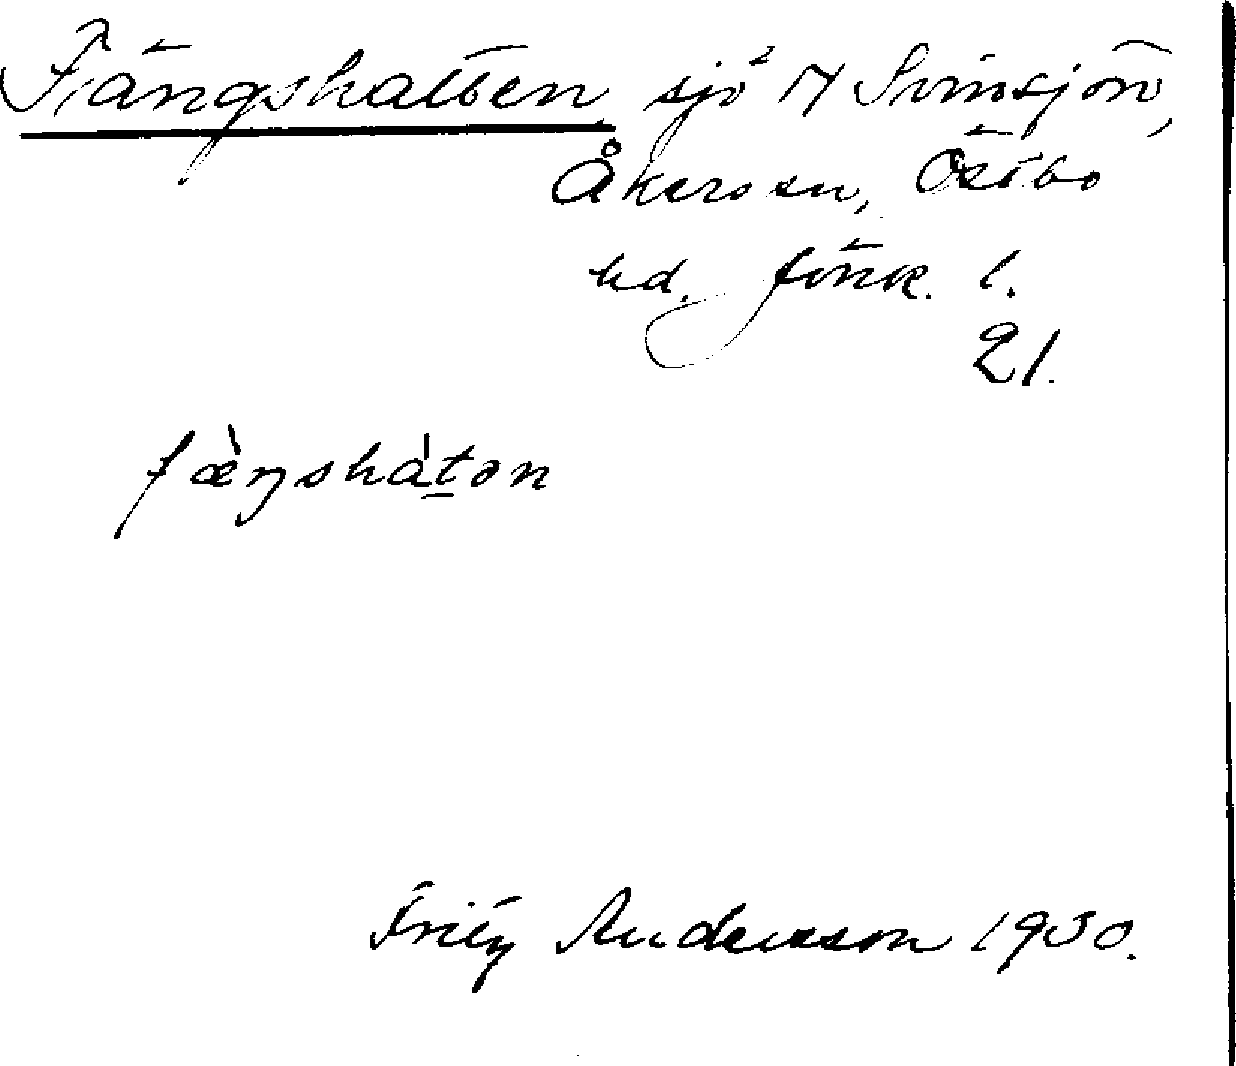 Fängshatten sjö N Svinsjön,
Åkers sn, Östbo
hd. Jönk. l.
21.
fæ̀ŋshàt̠ən
Fritz Andersson 1930.